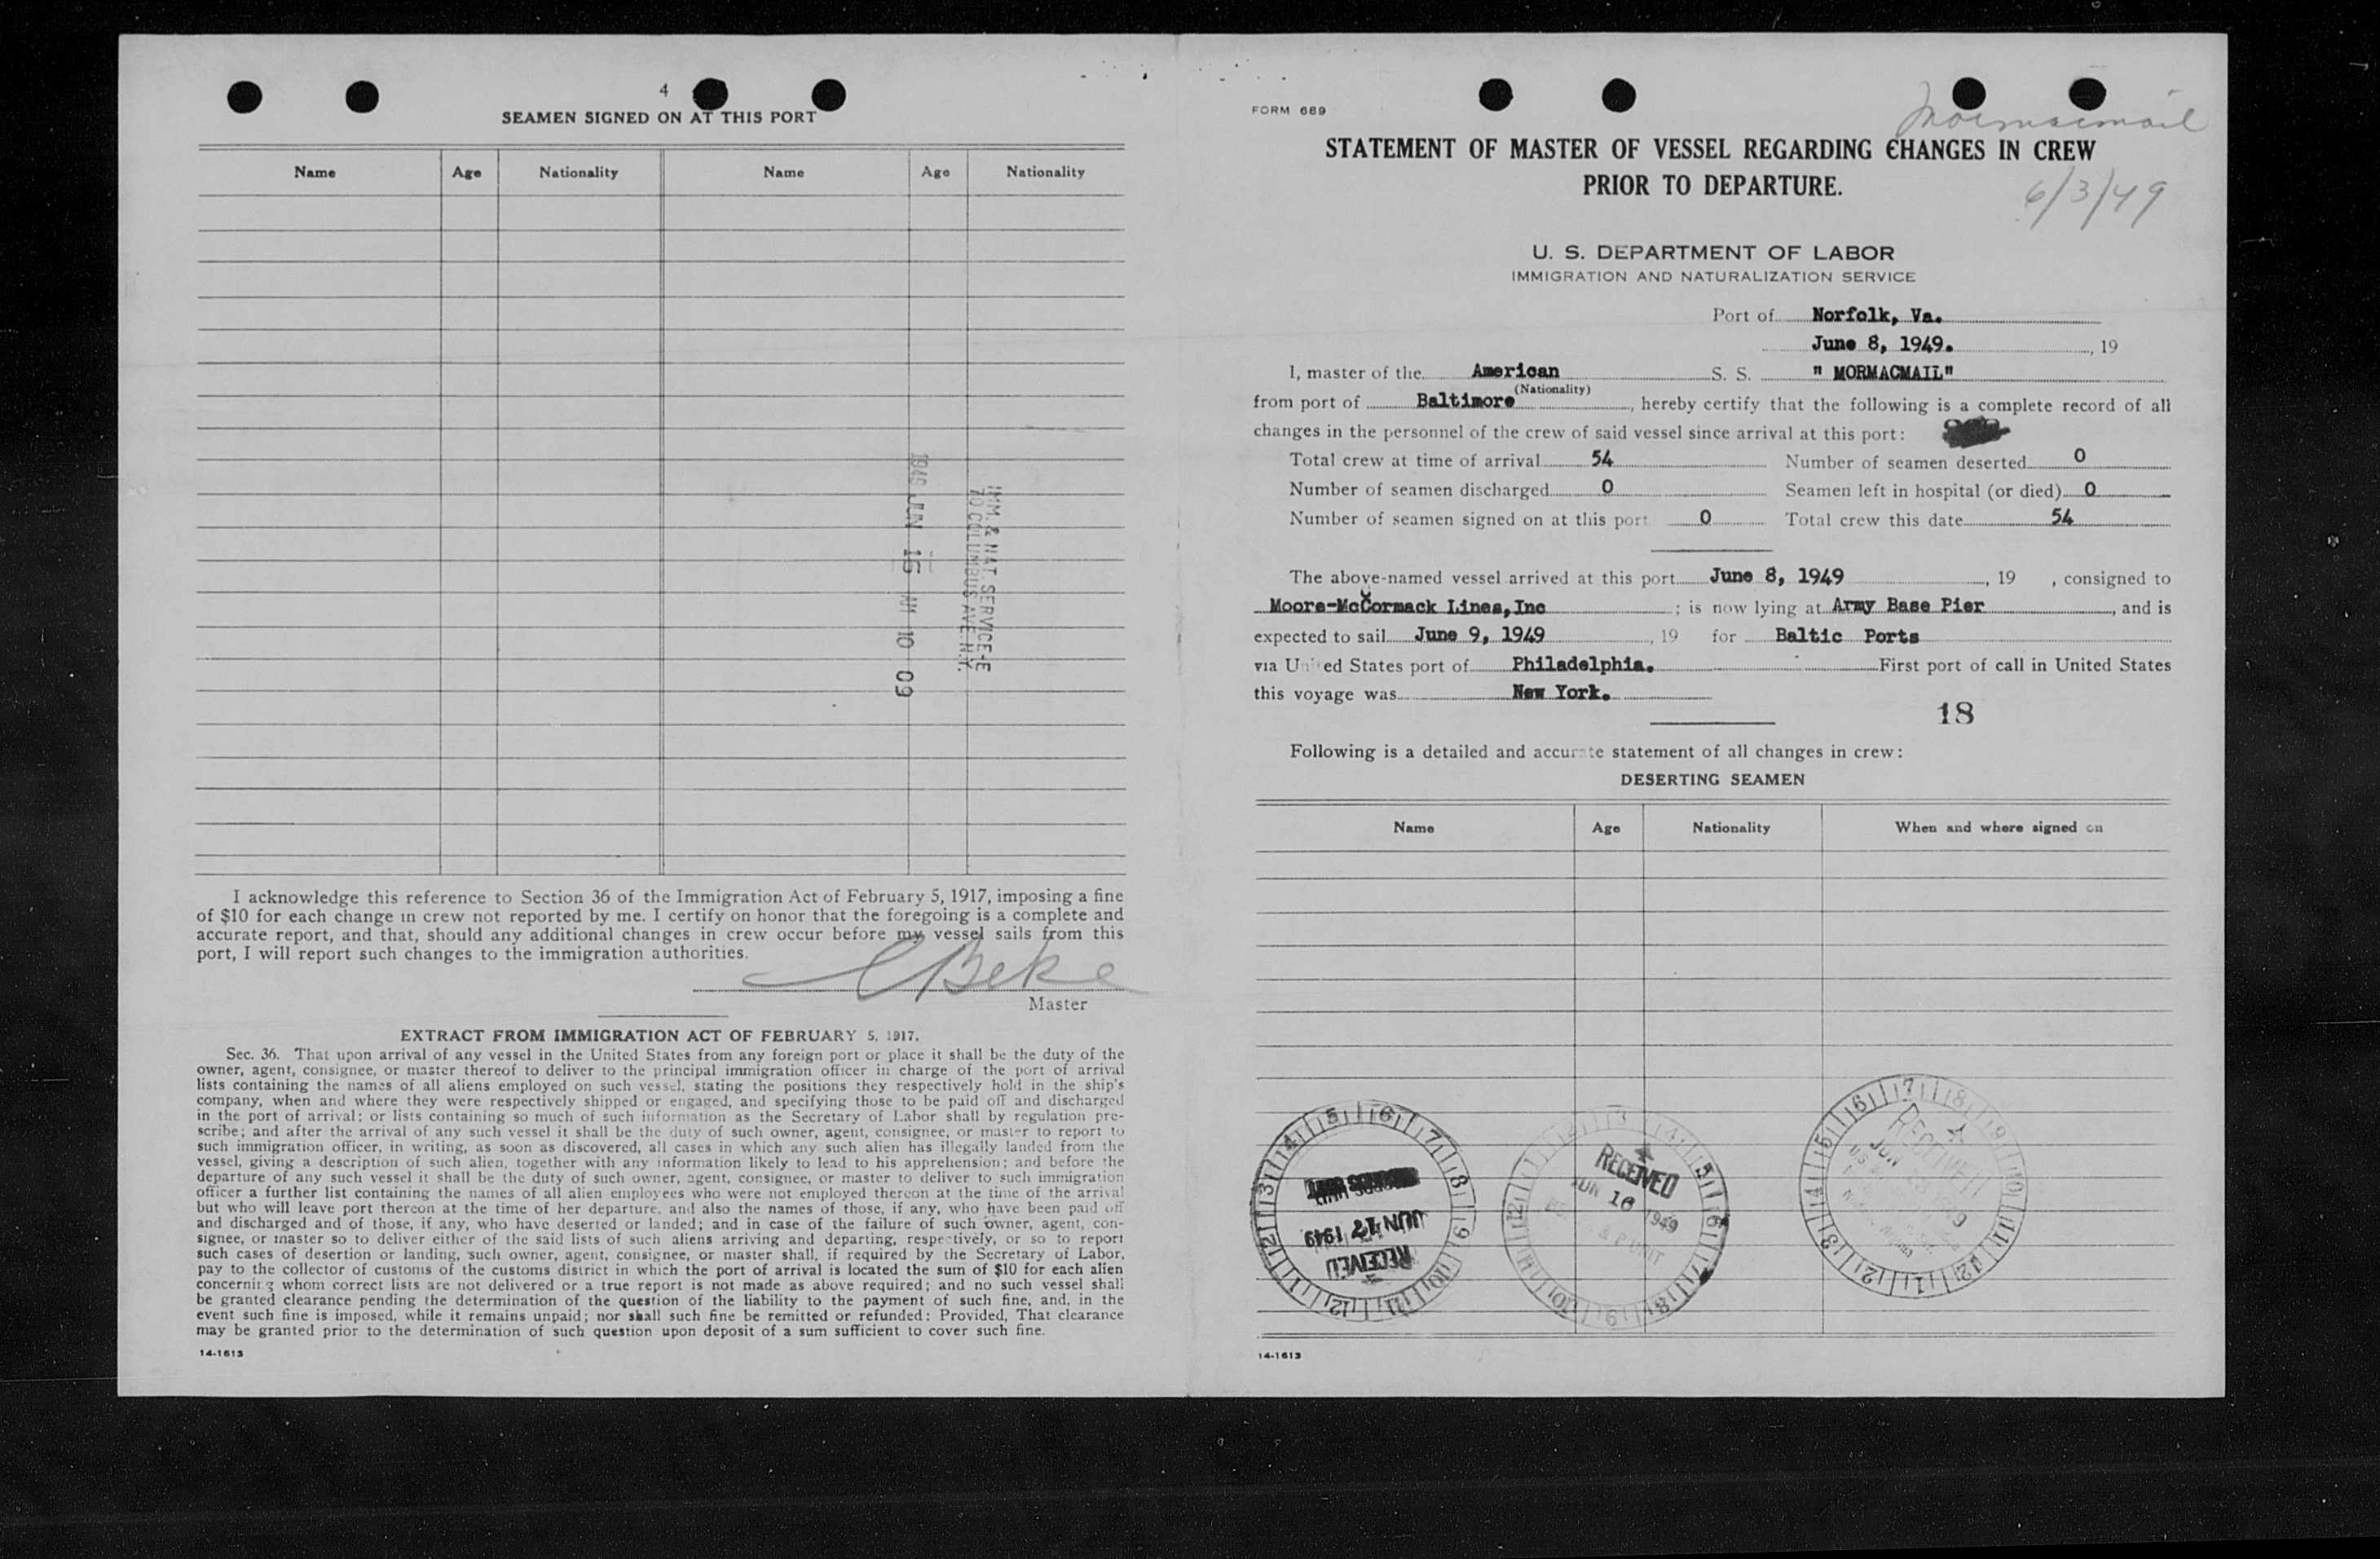 4
SEAMEN SIGNED ON AT THIS PORT
Name Age Nationality Name Age Nationality
IMM. & NAT. SERVICE-E
70 COLUMBUS AVE. N.Y.
1949 JUN 16 AM 10 09
I acknowledge this reference to Section 36 of the Immigration Act of February 5, 1917, imposing a fine
of $10 for each change in crew not reported by me. I certify on honor that the foregoing is a complete and
accurate report, and that, should any additional changes in crew occur before my vessel sails from this
port, I will report such changes to the immigration authorities.
Beke
Master
EXTRACT FROM IMMIGRATION ACT OF FEBRUARY 5, 1917.
Sec. 36. That upon arrival of any vessel in the United States from any foreign port or place it shall be the duty of the
owner, agent, consignee, or master thereof to deliver to the principal immigration officer in charge of the port of arrival
lists containing the names of all aliens employed on such vessel, stating the positions they respectively hold in the ship's
company, when and where they were respectively shipped or engaged, and specifying those to be paid off and discharged
in the port of arrival; or lists containing so much of such information as the Secretary of Labor shall by regulation pre-
scribe; and after the arrival of any such vessel it shall be the duty of such owner, agent, consignee, or master to report to
such immigration officer, in writing, as soon as discovered, all cases in which any such alien has illegally landed from the
vessel, giving a description of such alien, together with any information likely to lead to his apprehension; and before the
departure of any such vessel it shall be the duty of such owner, agent, consignee, or master to deliver to such immigration
officer a further list containing the names of all alien employees who were not employed thereon at the time of the arrival
but who will leave port thereon at the time of her departure, and also the names of those, if any, who have been paid off
and discharged and of those, if any, who have deserted or landed; and in case of the failure of such owner, agent, con-
signee, or master so to deliver either of the said lists of such aliens arriving and departing, respectively, or so to report
such cases of desertion or landing, such owner, agent, consignee, or master shall, if required by the Secretary of Labor,
pay to the collector of customs of the customs district in which the port of arrival is located the sum of $10 for each alien
concerning whom correct lists are not delivered or a true report is not made as above required; and no such vessel shall
be granted clearance pending the determination of the question of the liability to the payment of such fine, and, in the
event such fine is imposed, while it remains unpaid; nor shall such fine be remitted or refunded: Provided, That clearance
may be granted prior to the determination of such question upon deposit of a sum sufficient to cover such fine.
14-1613
FORM 689
Mormacmail
STATEMENT OF MASTER OF VESSEL REGARDING CHANGES IN CREW
PRIOR TO DEPARTURE.
6/3/49
U. S. DEPARTMENT OF LABOR
IMMIGRATION AND NATURALIZATION SERVICE
Port of Norfolk, Va.
June 8, 1949. , 19
I, master of the American S. S. " MORMACMAIL"
(Nationality)
from port of Baltimore , hereby certify that the following is a complete record of all
changes in the personnel of the crew of said vessel since arrival at this port:
Total crew at time of arrival 54 Number of seamen deserted 0
Number of seamen discharged 0 Seamen left in hospital (or died) 0
Number of seamen signed on at this port 0 Total crew this date 54
The above-named vessel arrived at this port June 8, 1949 , 19 , consigned to
Moore-McCormack Lines,Inc ; is now lying at Army Base Pier , and is
expected to sail June 9, 1949 , 19 for Baltic Ports
via United States port of Philadelphia. First port of call in United States
this voyage was New York.
18
Following is a detailed and accurate statement of all changes in crew:
DESERTING SEAMEN
Name Age Nationality When and where signed on
RECEIVED
JUN 17 1949
RECEIVED
JUN 16 1949
& P UNIT
RECEIVED
JUN 1949
14-1613